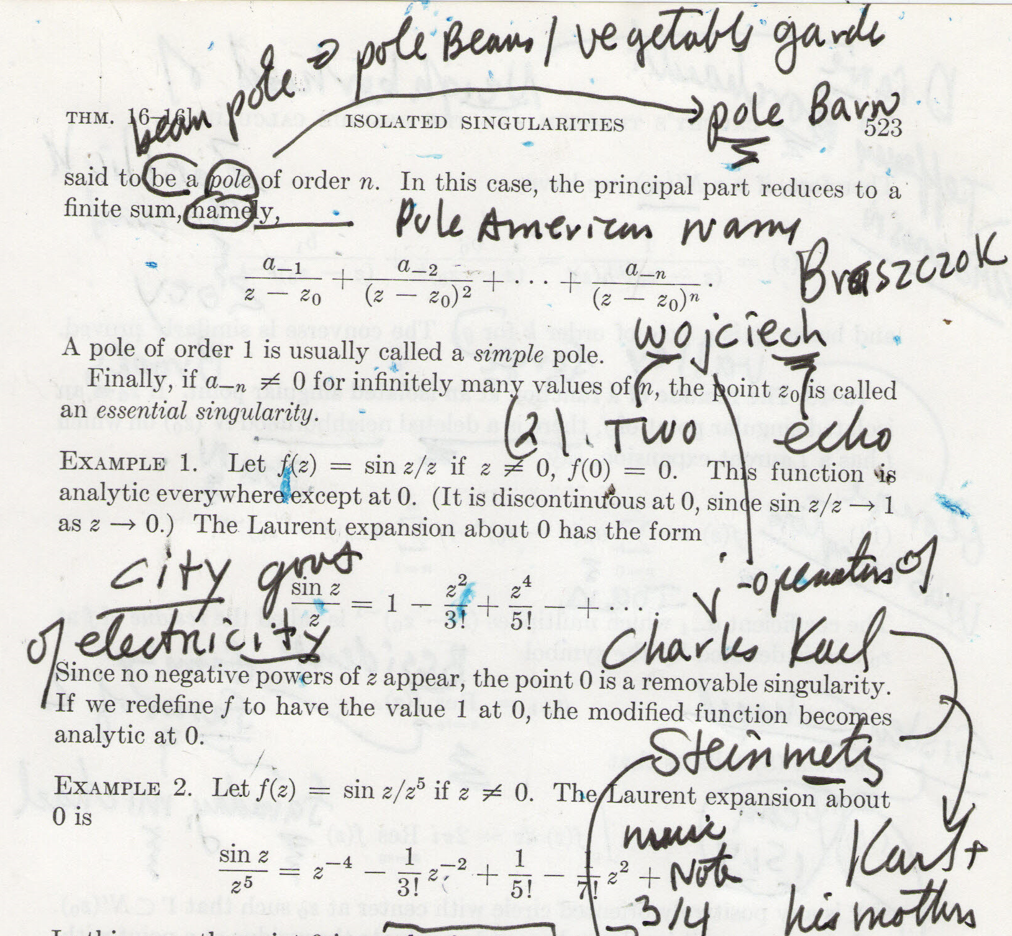 pole → pole Beans / vegetable garde
bean pole
pole Barn
THM. 16–16] ISOLATED SINGULARITIES 523
said to be a pole of order n. In this case, the principal part reduces to a
finite sum, namely,
Pole American name
a₋₁/(z − z₀) + a₋₂/(z − z₀)² + · · · + a₋ₙ/(z − z₀)ⁿ.
BraszczoK
wojciech
A pole of order 1 is usually called a simple pole.
Finally, if a₋ₙ ≠ 0 for infinitely many values of n, the point z₀ is called
an essential singularity.
(2). Two echo
EXAMPLE 1. Let f(z) = sin z/z if z ≠ 0, f(0) = 0. This function is
analytic everywhere except at 0. (It is discontinuous at 0, since sin z/z → 1
as z → 0.) The Laurent expansion about 0 has the form
city govt
sin z/z = 1 − z²/3! + z⁴/5! − + · · · .
operators of
of electricity
Charles Karl
Since no negative powers of z appear, the point 0 is a removable singularity.
If we redefine f to have the value 1 at 0, the modified function becomes
analytic at 0.
Steinmetz
EXAMPLE 2. Let f(z) = sin z/z⁵ if z ≠ 0. The Laurent expansion about
0 is
music
sin z/z⁵ = z⁻⁴ − (1/3!) z⁻² + 1/5! − (1/7!) z² +
Note
Karl +
his mothers